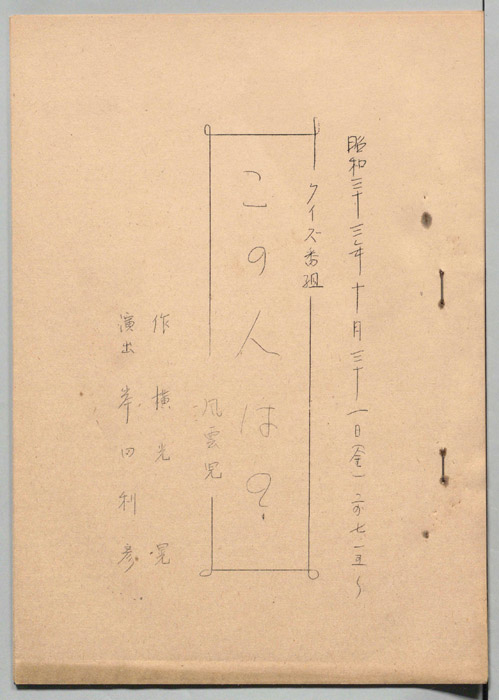 昭和三十三年十月三十一日(金)
クイズ番組
この人は?
風雲児
作 横光 晃
演出 岸田利彦